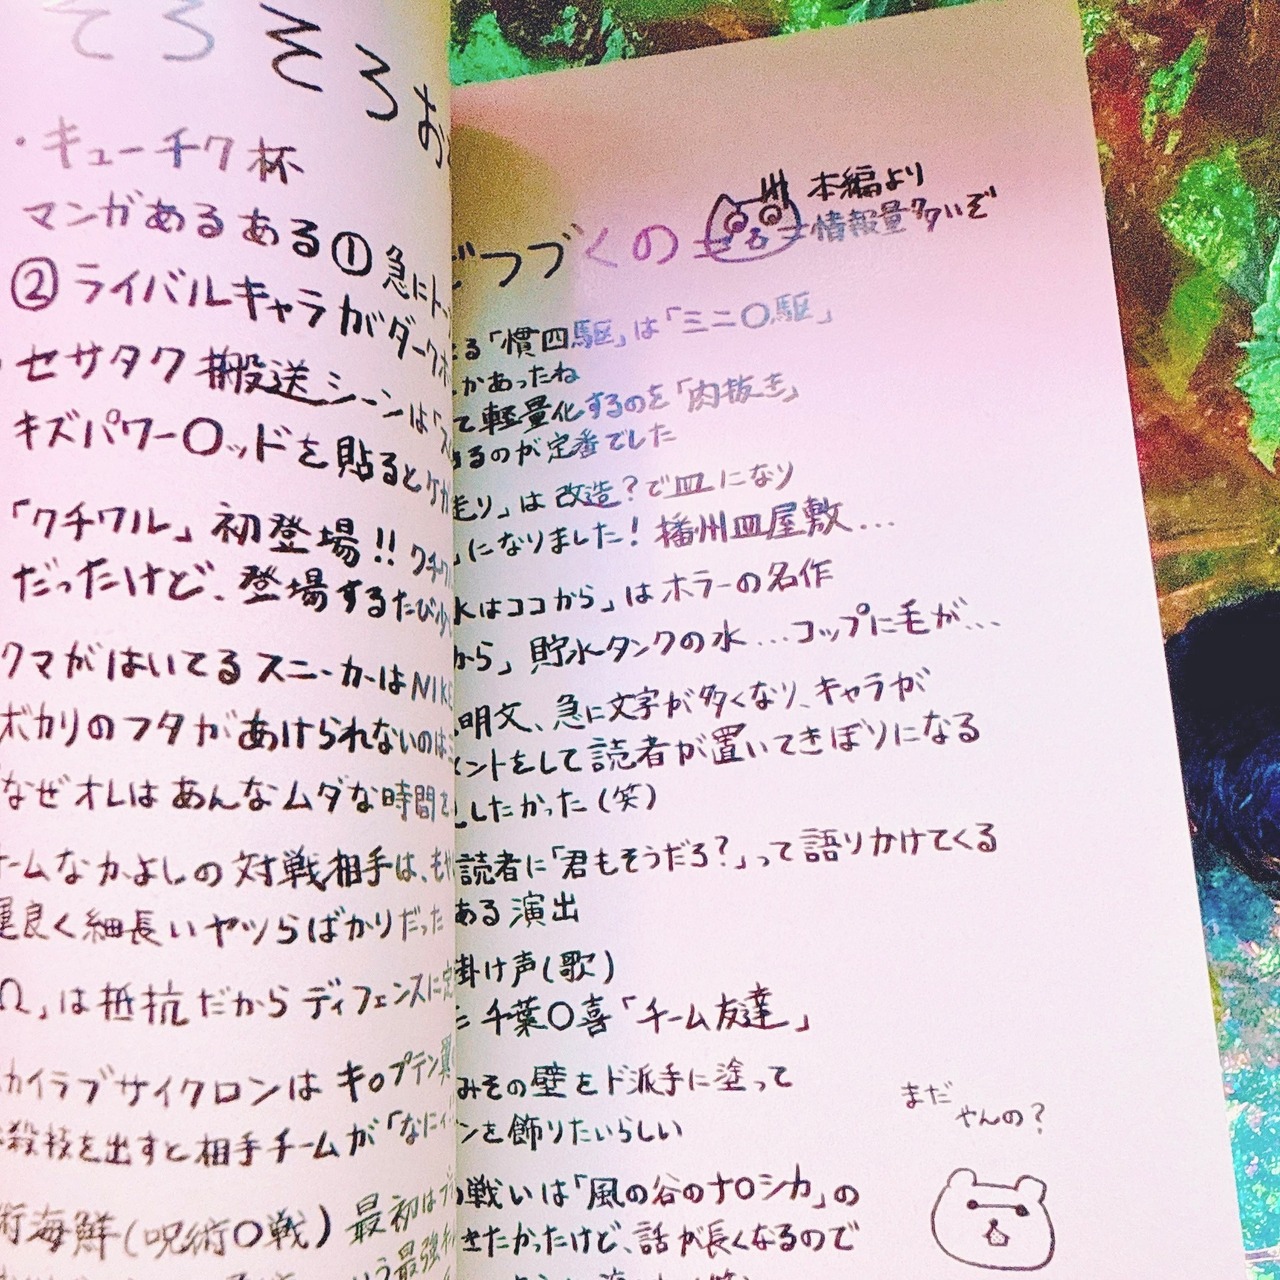 そろそろお
・キューチク杯
マンガあるある①急にト
②ライバルキャラがダーク
・セサタク搬送シーンは「
キズパワー〇ッドを貼ると
「クチワル」初登場!!クチワ
だったけど、登場するたび少
クマがはいてるスニーカーはNIKE
ボカリのフタがあけられないのは
なぜオレはあんなムダな時間を
ームなかよしの対戦相手は、もや
運良く細長いヤツらばかりだった
Ω」は抵抗だからディフェンスに定
カイラブサイクロンはキ〇プテン翼
殺技を出すと相手チームが「なにィ
術海鮮(呪術〇戦)最初はプ
いう最強
どつづくの
本編より
情報量多いぞ
る「慣四駆」は「ミニ〇駆」
かあったね
て軽量化するのを「肉抜き」
るのが定番でした
毛り」は改造?で皿になり
」になりました!播州皿屋敷…
水はココから」はホラーの名作
から」貯水タンクの水…コップに毛が…
明文、急に文字が多くなり、キャラが
ントをして読者が置いてきぼりになる
したかった(笑)
読者に「君もそうだろ?」って語りかけてくる
ある演出
掛け声(歌)
千葉〇喜「チーム友達」
みその壁をド派手に塗って
ンを飾りたいらしい
戦いは「風の谷のナ〇シカ」の
きたかったけど、話が長くなるので
まだ
やんの?